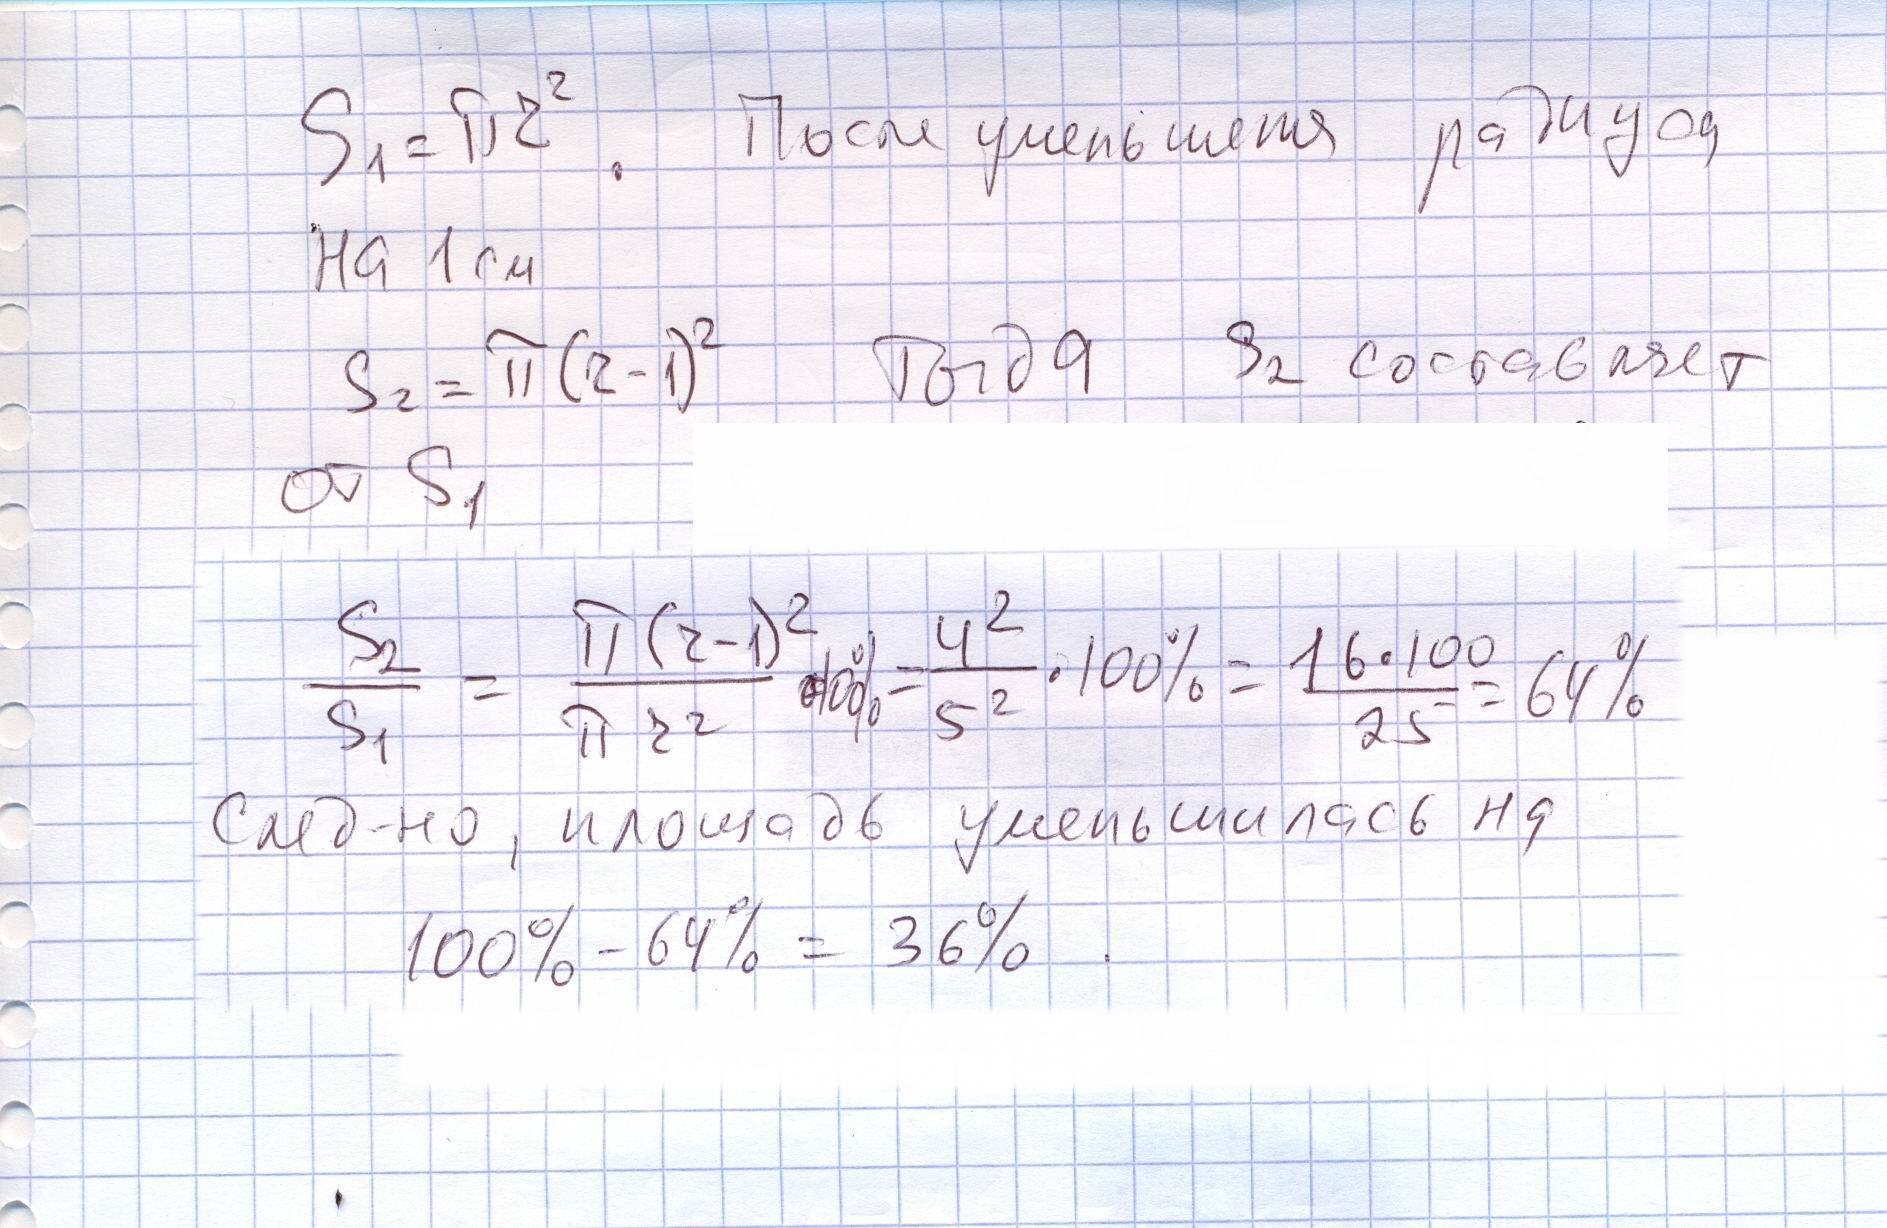 S₁ = πr². После уменьшения радиуса
на 1 см
S₂ = π(r-1)² Тогда S₂ составляет
от S₁
S₂/S₁ = π(r-1)²/πr² · 100% = 4²/5² · 100% = 16·100/25 = 64%
След-но, площадь уменьшилась на
100% - 64% = 36%.